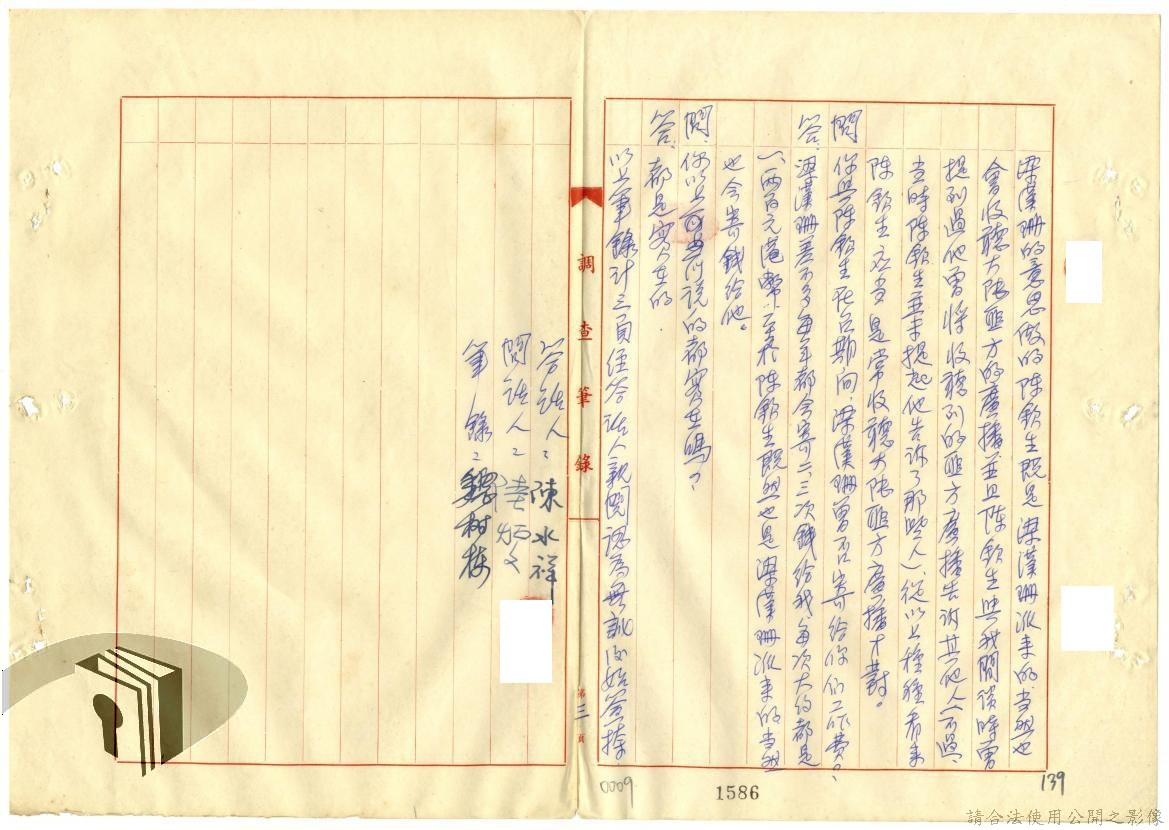 梁漢珊的意思做的陳欽生既是梁漢珊派來的當然也
會收聽大陸匪方的廣播並且陳欽生與我閒談時曾
提到過他曾將收聽到的匪方廣播告訴其他人(不過
當時陳欽生並未提起他告訴了那些人)、從以上種種看來
陳欽生應當是常收聽大陸匪方廣播才對。
問、你與陳欽生在台期間,梁漢珊曾否寄給你們工作費?
答、梁漢珊差不多每年都會寄二、三次錢給我,每次大約都是
一、兩百元港幣,至於陳欽生既然也是梁漢珊派來的當然
也會寄錢給他。
問、你以上所說的都實在嗎?
答、都是實在的
以上筆錄計三頁經答話人親閱認為無訛後始簽捺
答話人:陳水祥
問話人:
筆錄:魏樹林
調查筆錄
第三頁
0009
1586
139
請合法使用公開之影像